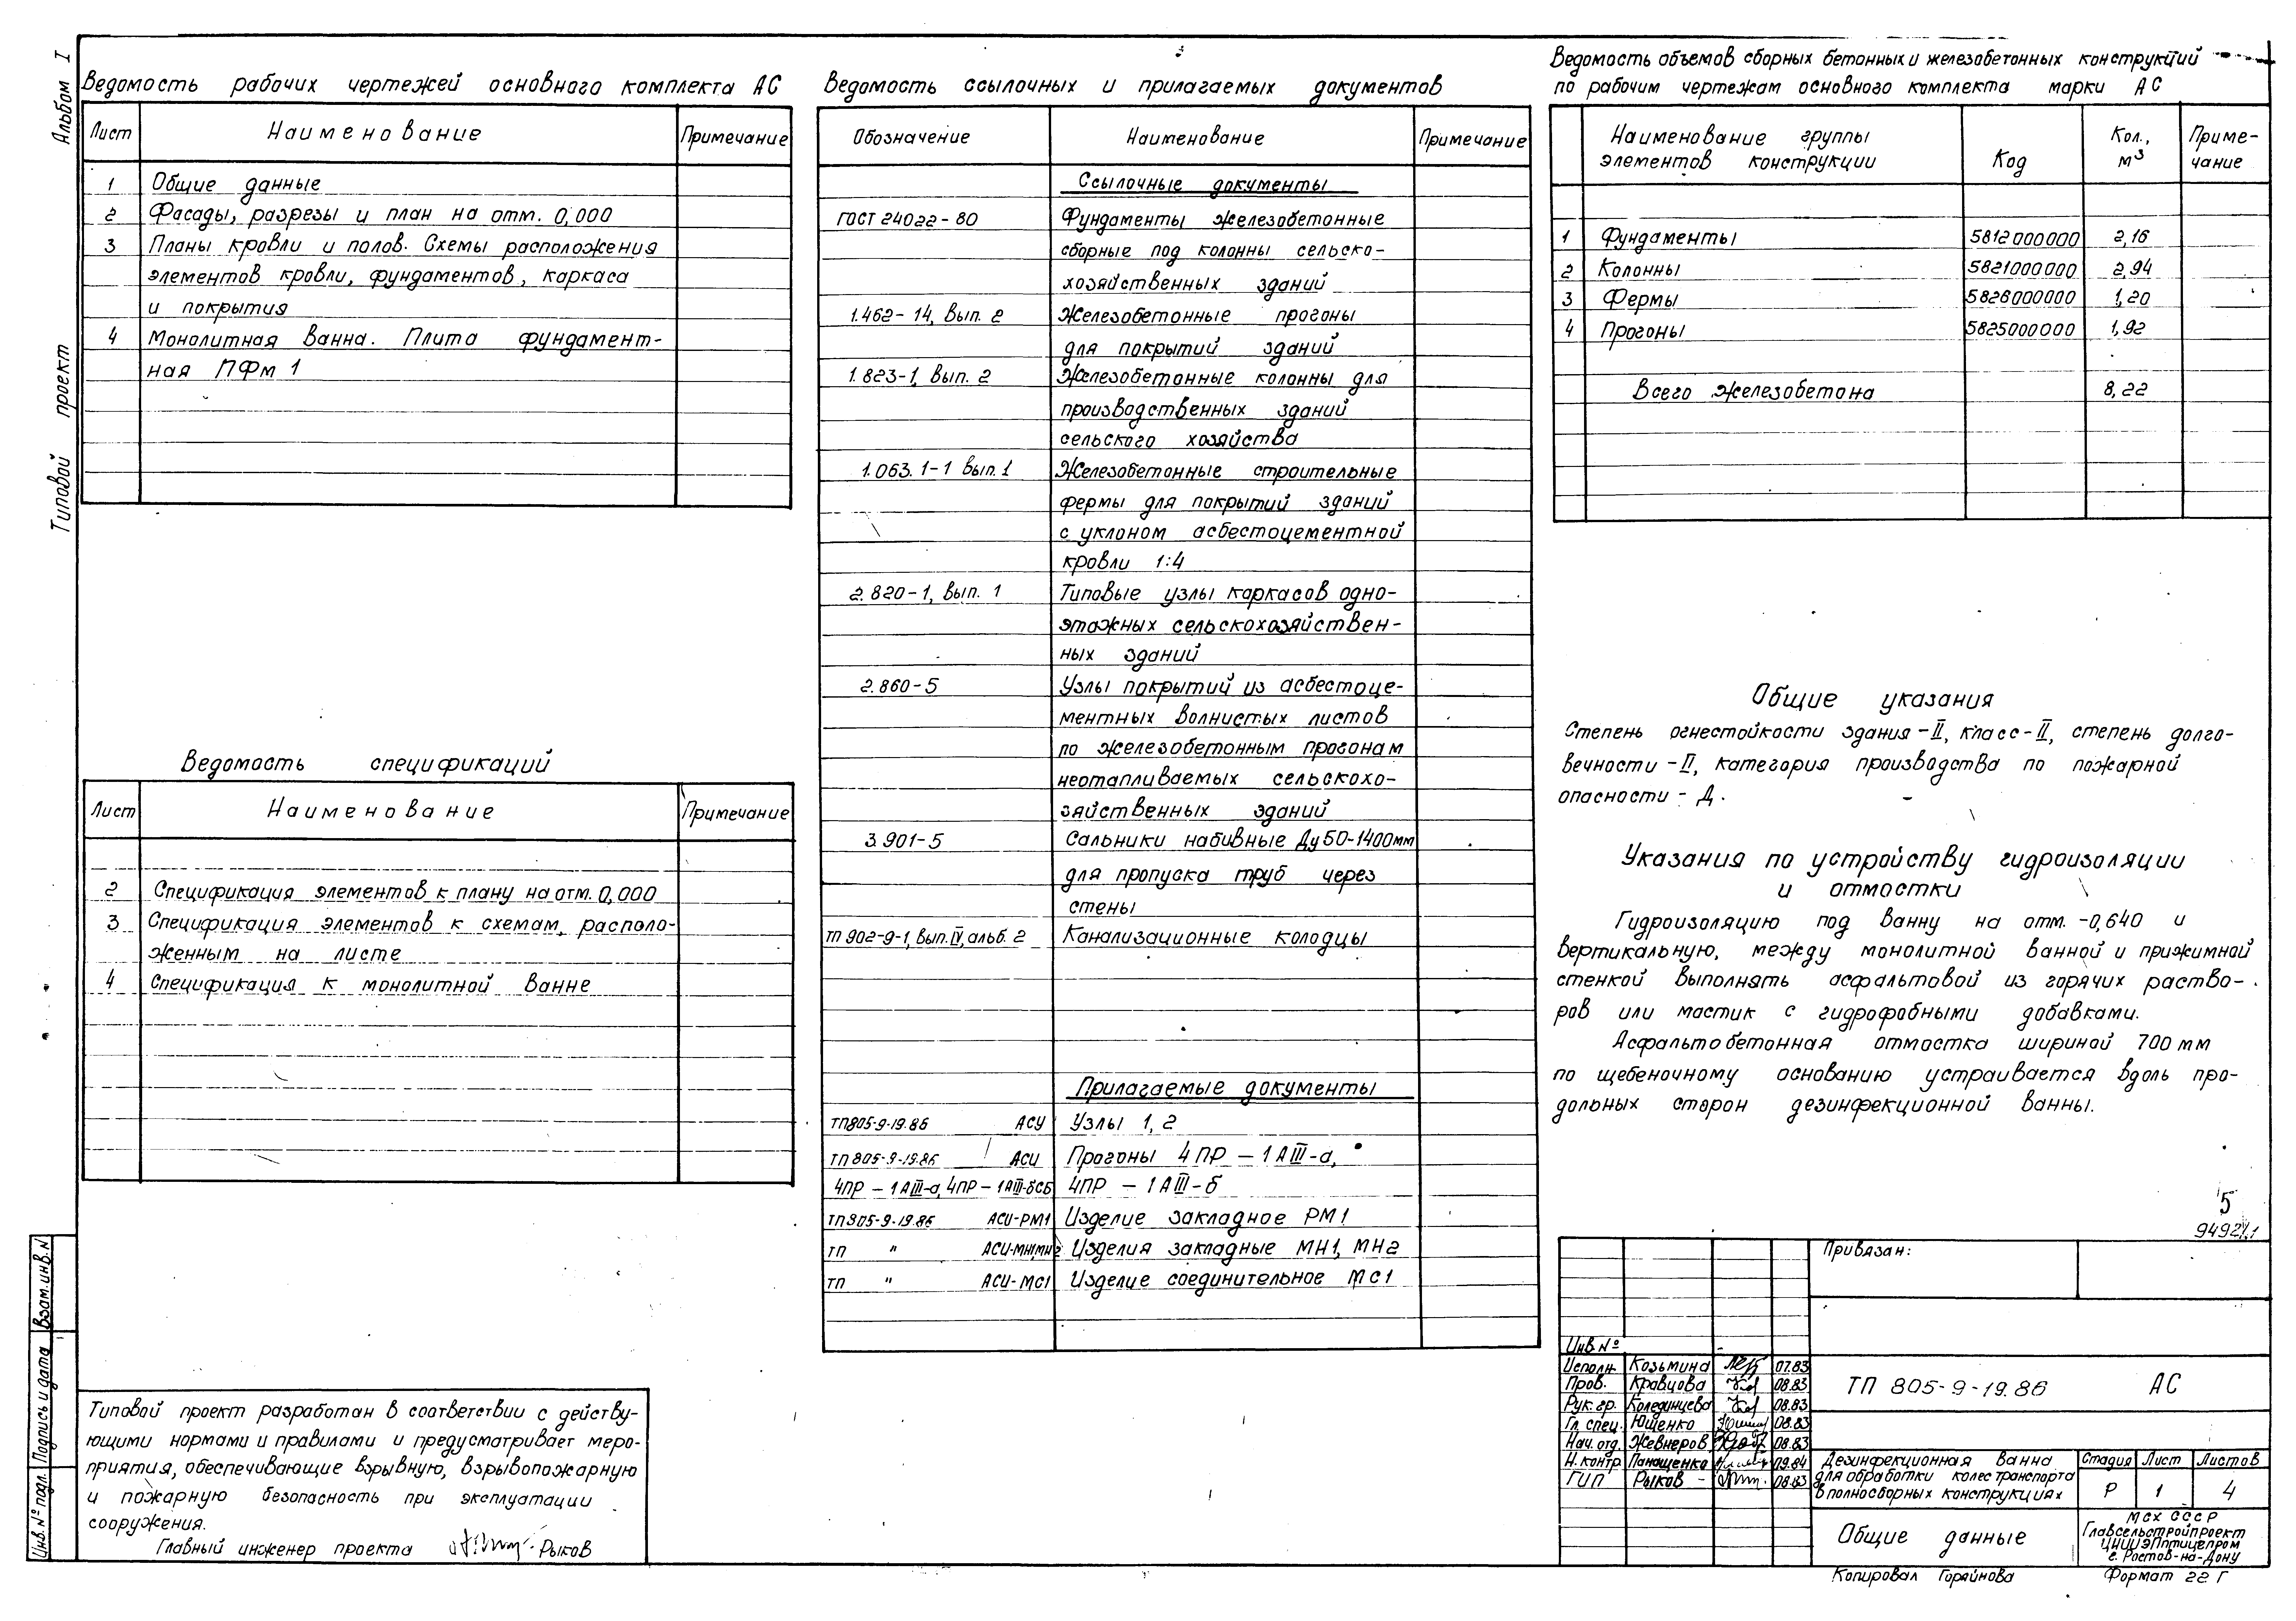 Альбом I
Типовой проект
Ведомость рабочих чертежей основного комплекта АС
Лист Наименование Примечание
1 Общие данные
2 Фасады, разрезы и план на отм. 0,000
3 Планы кровли и полов. Схемы расположения
элементов кровли, фундаментов, каркаса
и покрытия
4 Монолитная ванна. Плита фундамент-
ная ПФм 1
Ведомость спецификаций
Лист Наименование Примечание
2 Спецификация элементов к плану на отм. 0,000
3 Спецификация элементов к схемам, располо-
женным на листе
4 Спецификация к монолитной ванне
Типовой проект разработан в соответствии с действу-
ющими нормами и правилами и предусматривает меро-
приятия, обеспечивающие взрывную, взрывопожарную
и пожарную безопасность при эксплуатации
сооружения.
Главный инженер проекта Рыков
Инв. № подл. Подпись и дата Взам. инв. №
Ведомость ссылочных и прилагаемых документов
Обозначение Наименование Примечание
Ссылочные документы
ГОСТ 24022-80 Фундаменты железобетонные
сборные под колонны сельско-
хозяйственных зданий
1.462-14, Вып. 2 Железобетонные прогоны
для покрытий зданий
1.823-1, Вып. 2 Железобетонные колонны для
производственных зданий
сельского хозяйства
1.063.1-1 Вып. 1 Железобетонные строительные
фермы для покрытий зданий
с уклоном асбестоцементной
кровли 1:4
2.820-1, Вып. 1 Типовые узлы каркасов одно-
этажных сельскохозяйствен-
ных зданий
2.860-5 Узлы покрытий из асбестоце-
ментных волнистых листов
по железобетонным прогонам
неотапливаемых сельскохо-
зяйственных зданий
3.901-5 Сальники набивные Ду 50-1400мм
для пропуска труб через
стены
ТП 902-9-1, Вып. IV, альб. 2 Канализационные колодцы
Прилагаемые документы
ТП805-9-19.86 АСУ Узлы 1, 2
ТП 805-9-19.86 АСИ Прогоны 4ПР – 1АIII-а,
4ПР – 1АIII-а, 4ПР – 1АIII-бСБ 4ПР – 1АIII-б
ТП805-9-19.86 АСИ-РМ1 Изделие закладное РМ1
ТП " АСИ-МН1,МН2 Изделия закладные МН1, МН2
ТП " АСИ-МС1 Изделие соединительное МС1
Ведомость объемов сборных бетонных и железобетонных конструкций
по рабочим чертежам основного комплекта марки АС
Наименование группы элементов конструкции Код Кол., м3 Приме-чание
1 Фундаменты 5812000000 2,16
2 Колонны 5821000000 2,94
3 Фермы 5826000000 1,20
4 Прогоны 5825000000 1,92
Всего железобетона 8,22
Общие указания
Степень огнестойкости здания – II, класс – II, степень долго-
вечности – II, категория производства по пожарной
опасности – Д.
Указания по устройству гидроизоляции
и отмостки
Гидроизоляцию под ванну на отм. -0,640 и
вертикальную, между монолитной ванной и прижимной
стенкой выполнять асфальтовой из горячих раство-
ров или мастик с гидрофобными добавками.
Асфальтобетонная отмостка шириной 700 мм
по щебеночному основанию устраивается вдоль про-
дольных сторон дезинфекционной ванны.
5
Привязан:
Инв №
Исполн. Козьмина 07.83
Пров. Кравцова 08.83
Рук. гр. Колединцева 08.83
Гл. спец. Ющенко 08.83
Нач. отд. Жевнеров 08.83
Н. контр. Панащенко 09.84
ГИП Рыков 08.83
ТП 805-9-19.86 АС
Дезинфекционная ванна
для обработки колес транспорта
в полносборных конструкциях
Стадия Лист Листов
Р 1 4
Общие данные
МСХ СССР
Главсельстройпроект
ЦНИИЭПптицепром
г. Ростов-на-Дону
Копировал Горяйнова Формат 22 Г